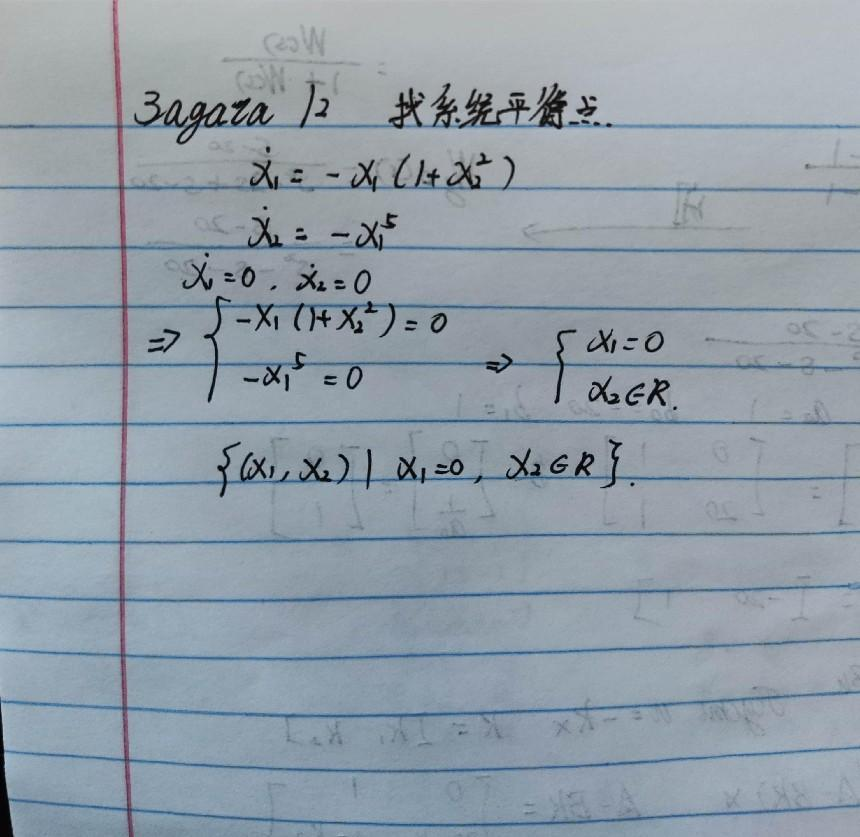 Загаза 12 找系统平衡点.
ẋ₁ = -x₁(1+x₂²)
ẋ₂ = -x₁⁵
ẋ₁=0. ẋ₂=0
⇒ { -x₁(1+x₂²)=0 -x₁⁵=0 ⇒ { x₁=0 x₂∈R.
{(x₁, x₂) | x₁=0, x₂∈R}.